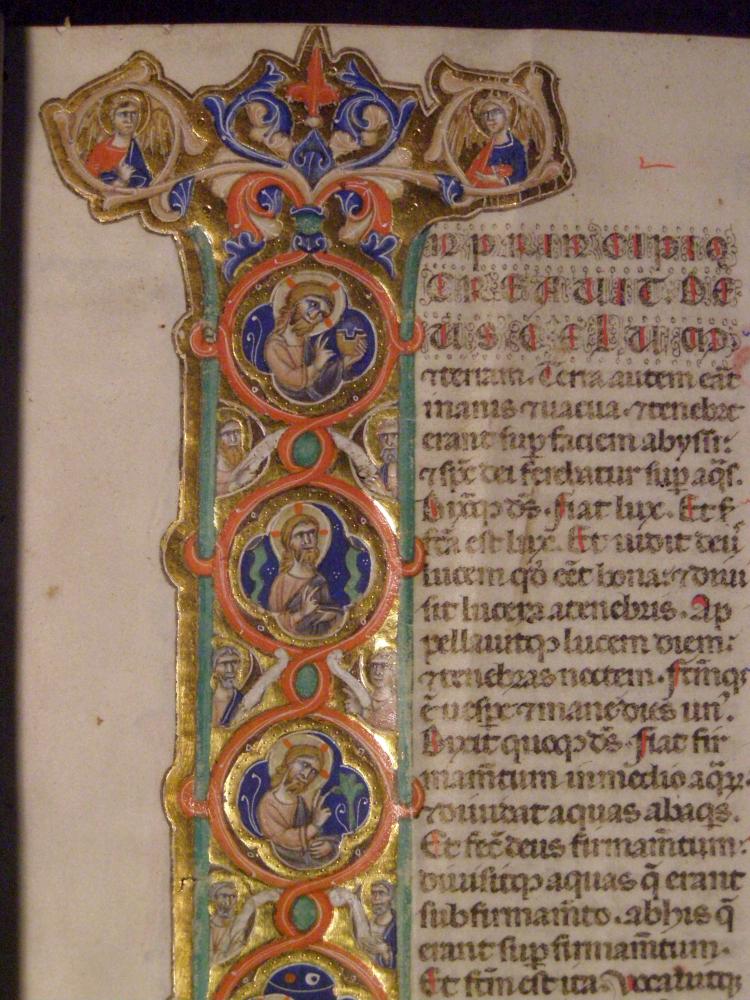 N PRINCIPIO
CREAVIT DE
US CELUM
⁊ terram. Terra autem erat
inanis ⁊ uacua. ⁊ tenebre
erant sup faciem abyssi:
⁊ sp̄c dei ferebatur sup aq̄s.
Dixitq; d̄s. fiat lux. Et f
ct̄a est lux. Et uidit deus
lucem qd̓ eēt bona: ⁊ diui
sit lucem a tenebris. Ap
pellauitq; lucem diem:
⁊ tenebras noctem. factumq;
ē uesp̄e ⁊ mane dies un᾿.
Dixit quoq; d̄s. fiat fir
mam̄tum in medio aq̄ꝝ:
⁊ diuidat aquas ab aq̄s.
Et fec̄ deus firmam̄tum:
diuisitq; aquas q̄ erant
sub firmam̄to. ab his q̄
erant sup firmam̄tum.
Et fc̄m est ita. vocauitq;